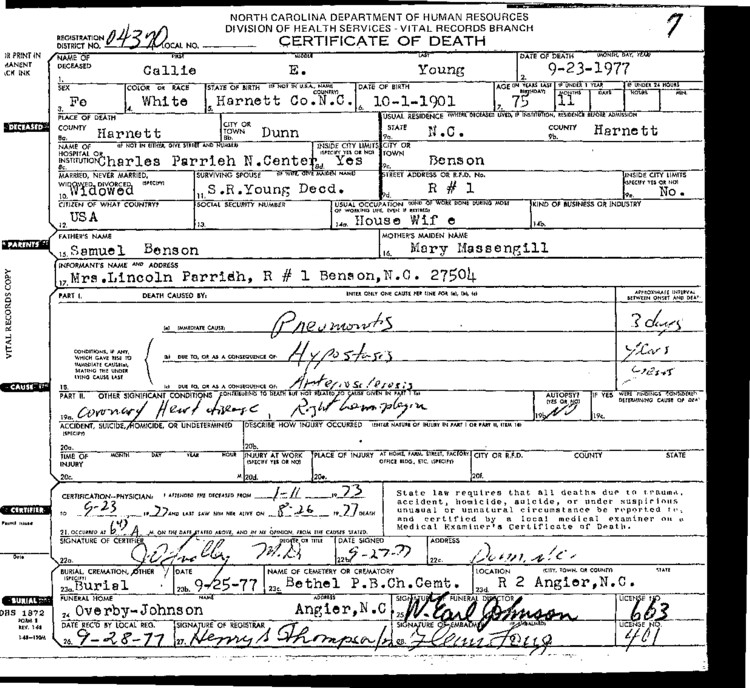 7
NORTH CAROLINA DEPARTMENT OF HUMAN RESOURCES
DIVISION OF HEALTH SERVICES - VITAL RECORDS BRANCH
REGISTRATION DISTRICT NO. 04370 LOCAL NO. CERTIFICATE OF DEATH
NAME OF DECEASED FIRST MIDDLE LAST DATE OF DEATH (MONTH, DAY, YEAR)
1. Callie E. Young 2. 9-23-1977
SEX COLOR OR RACE STATE OF BIRTH (IF NOT IN U.S.A., NAME COUNTRY) DATE OF BIRTH AGE (IN YEARS LAST BIRTHDAY) IF UNDER 1 YEAR MONTHS DAYS IF UNDER 24 HOURS HOURS MIN.
3. Fe 4. White 5. Harnett Co.N.C. 6. 10-1-1901 7. 75 11
DECEASED
PLACE OF DEATH USUAL RESIDENCE (WHERE DECEASED LIVED, IF INSTITUTION, RESIDENCE BEFORE ADMISSION)
COUNTY CITY OR TOWN STATE COUNTY
8a. Harnett 8b. Dunn 9a. N.C. 9b. Harnett
NAME OF HOSPITAL OR INSTITUTION (IF NOT IN EITHER, GIVE STREET AND NUMBER) INSIDE CITY LIMITS (SPECIFY YES OR NO) CITY OR TOWN
8c. Charles Parrish N.Center 8d. Yes 9c. Benson
MARRIED, NEVER MARRIED, WIDOWED, DIVORCED (SPECIFY) SURVIVING SPOUSE (IF WIFE, GIVE MAIDEN NAME) STREET ADDRESS OR R.F.D. No. INSIDE CITY LIMITS (SPECIFY YES OR NO)
10. Widowed 11. S.R.Young Decd. 9d. R # 1 9e. No.
CITIZEN OF WHAT COUNTRY? SOCIAL SECURITY NUMBER USUAL OCCUPATION (KIND OF WORK DONE DURING MOST OF WORKING LIFE, EVEN IF RETIRED) KIND OF BUSINESS OR INDUSTRY
12. USA 13. 14a. House Wif e 14b.
PARENTS
FATHER'S NAME MOTHER'S MAIDEN NAME
15. Samuel Benson 16. Mary Massengill
INFORMANT'S NAME AND ADDRESS
17. Mrs.Lincoln Parrish, R # 1 Benson,N.C. 27504
VITAL RECORDS COPY
PART I. DEATH CAUSED BY: ENTER ONLY ONE CAUSE PER LINE FOR (a), (b), (c) APPROXIMATE INTERVAL BETWEEN ONSET AND DEATH
(a) IMMEDIATE CAUSE: Pneumonitis 3 days
CONDITIONS, IF ANY, WHICH GAVE RISE TO IMMEDIATE CAUSE(a), STATING THE UNDERLYING CAUSE LAST
(b) DUE TO, OR AS A CONSEQUENCE OF: Hypostasis years
CAUSE
18. (c) DUE TO, OR AS A CONSEQUENCE OF: Arteriosclerosis years
PART II. OTHER SIGNIFICANT CONDITIONS CONTRIBUTING TO DEATH BUT NOT RELATED TO CAUSE GIVEN IN PART I (a) AUTOPSY? (YES OR NO) IF YES WERE FINDINGS CONSIDERED IN DETERMINING CAUSE OF DEATH
19a. Coronary Heart disease Right hemiplegia 19b. NO 19c.
ACCIDENT, SUICIDE, HOMICIDE, OR UNDETERMINED (SPECIFY) DESCRIBE HOW INJURY OCCURRED (ENTER NATURE OF INJURY IN PART I OR PART II, ITEM 18)
20a. 20b.
TIME OF INJURY MONTH DAY YEAR HOUR INJURY AT WORK (SPECIFY YES OR NO) PLACE OF INJURY AT HOME, FARM, STREET, FACTORY, OFFICE BLDG., ETC. (SPECIFY) CITY OR R.F.D. COUNTY STATE
20c. M 20d. 20e. 20f.
CERTIFIER
CERTIFICATION—PHYSICIAN: I ATTENDED THE DECEASED FROM 1-11 1973
TO 9-23 1977 AND LAST SAW HIM HER ALIVE ON 8-26 1977 DEATH
21. OCCURRED AT A M ON THE DATE STATED ABOVE, AND IN MY OPINION, FROM THE CAUSES STATED.
State law requires that all deaths due to trauma,
accident, homicide, suicide, or under suspicious
unusual or unnatural circumstance be reported to,
and certified by a local medical examiner on a
Medical Examiner's Certificate of Death.
SIGNATURE OF CERTIFIER DEGREE OR TITLE DATE SIGNED ADDRESS
22a. M.D. 22b. 9-27-77 22c. Dunn, N.C.
BURIAL, CREMATION, OTHER (SPECIFY) DATE NAME OF CEMETERY OR CREMATORY LOCATION (CITY, TOWN, OR COUNTY) STATE
23a. Burial 23b. 9-25-77 23c. Bethel P.B.Ch.Cemt. 23d. R 2 Angier,N.C.
BURIAL
FUNERAL HOME NAME ADDRESS SIGNATURE OF FUNERAL DIRECTOR LICENSE NO.
24. Overby-Johnson Angier,N.C 25. W. Earl Johnson 663
DHS 1872
FORM 8
REV. 1-68
DATE REC'D BY LOCAL REG. SIGNATURE OF REGISTRAR SIGNATURE OF EMBALMER LICENSE NO.
26. 9-28-77 27. Henry S Thompson 28. 401